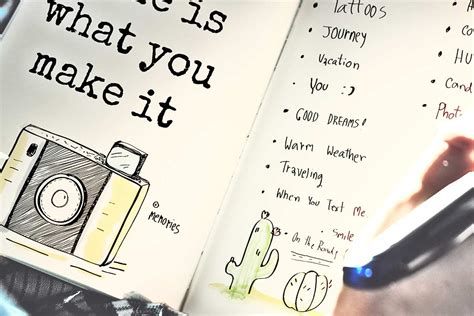 is
what you
make it
© memories
Tattoos
• JOURNEY
• VACATION
• YOU :)
• GOOD DREAMS!
• Warm Weather
• Traveling
• When You Text Me.
• Smile
• On the Road
• HU
• Cand
• Phot